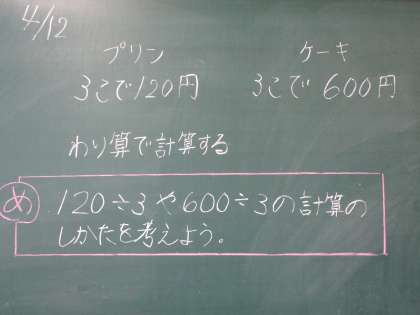 4/12
プリン ケーキ
3こで120円 3こで600円
わり算で計算する
め 120÷3や600÷3の計算の
しかたを考えよう。